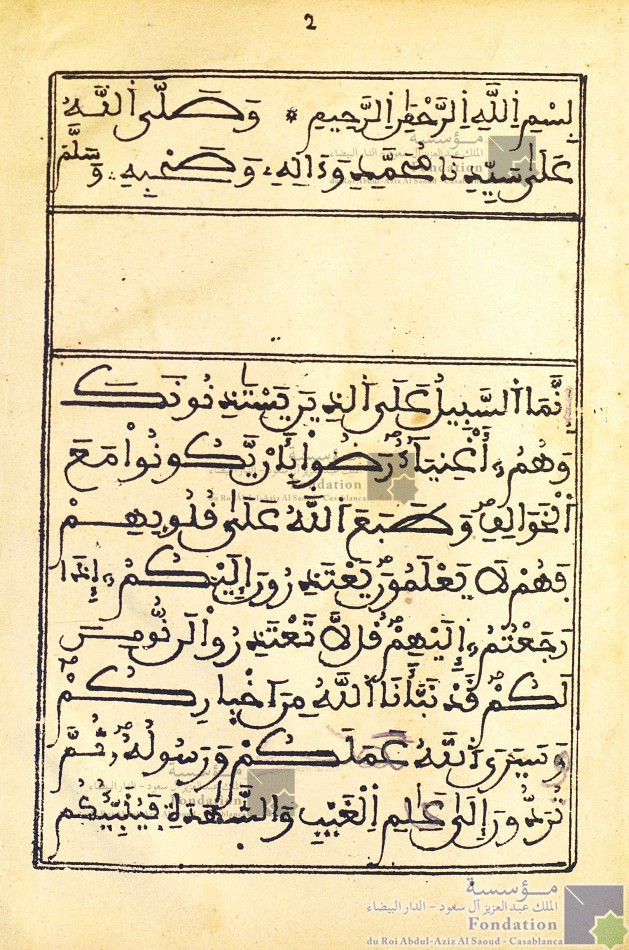 2
بِسْمِ اِ۬للَّهِ اِ۬لرَّحْمَٰنِ اِ۬لرَّحِيمِ * وَصَلَّى اَ۬للَّهُ
عَلَىٰ سَيِّدِنَا مُحَمَّدٍ وَءَالِهِۦ وَصَحْبِهِۦ وَسَلَّمَ
إِنَّمَا اَ۬لسَّبِيلُ عَلَى اَ۬لذِينَ يَسْتَٰذِنُونَكَ
وَهُمُۥٓ أَغْنِيَآءُ رَضُواْ بِأَنْ يَّكُونُواْ مَعَ
اَ۬لْخَوَالِفِ وَطَبَعَ اَ۬للَّهُ عَلَىٰ قُلُوبِهِمْ
فَهُمْ لَا يَعْلَمُونَ يَعْتَذِرُونَ إِلَيْكُمُۥٓ إِذَا
رَجَعْتُمُۥٓ إِلَيْهِمْ قُل لَّا تَعْتَذِرُواْ لَن نُّومِنَ
لَكُمْ قَدْ نَبَّأَنَا اَ۬للَّهُ مِنَ اَخْبَارِكُمْ
وَسَيَرَى اَ۬للَّهُ عَمَلَكُمْ وَرَسُولُهُۥ ثُمَّ
تُرَدُّونَ إِلَىٰ عَٰلِمِ اِ۬لْغَيْبِ وَالشَّهَٰدَةِ فَيُنَبِّئُكُم
مؤسسة
الملك عبد العزيز آل سعود - الدار البيضاء
Fondation
du Roi Abdul-Aziz Al Saoud - Casablanca